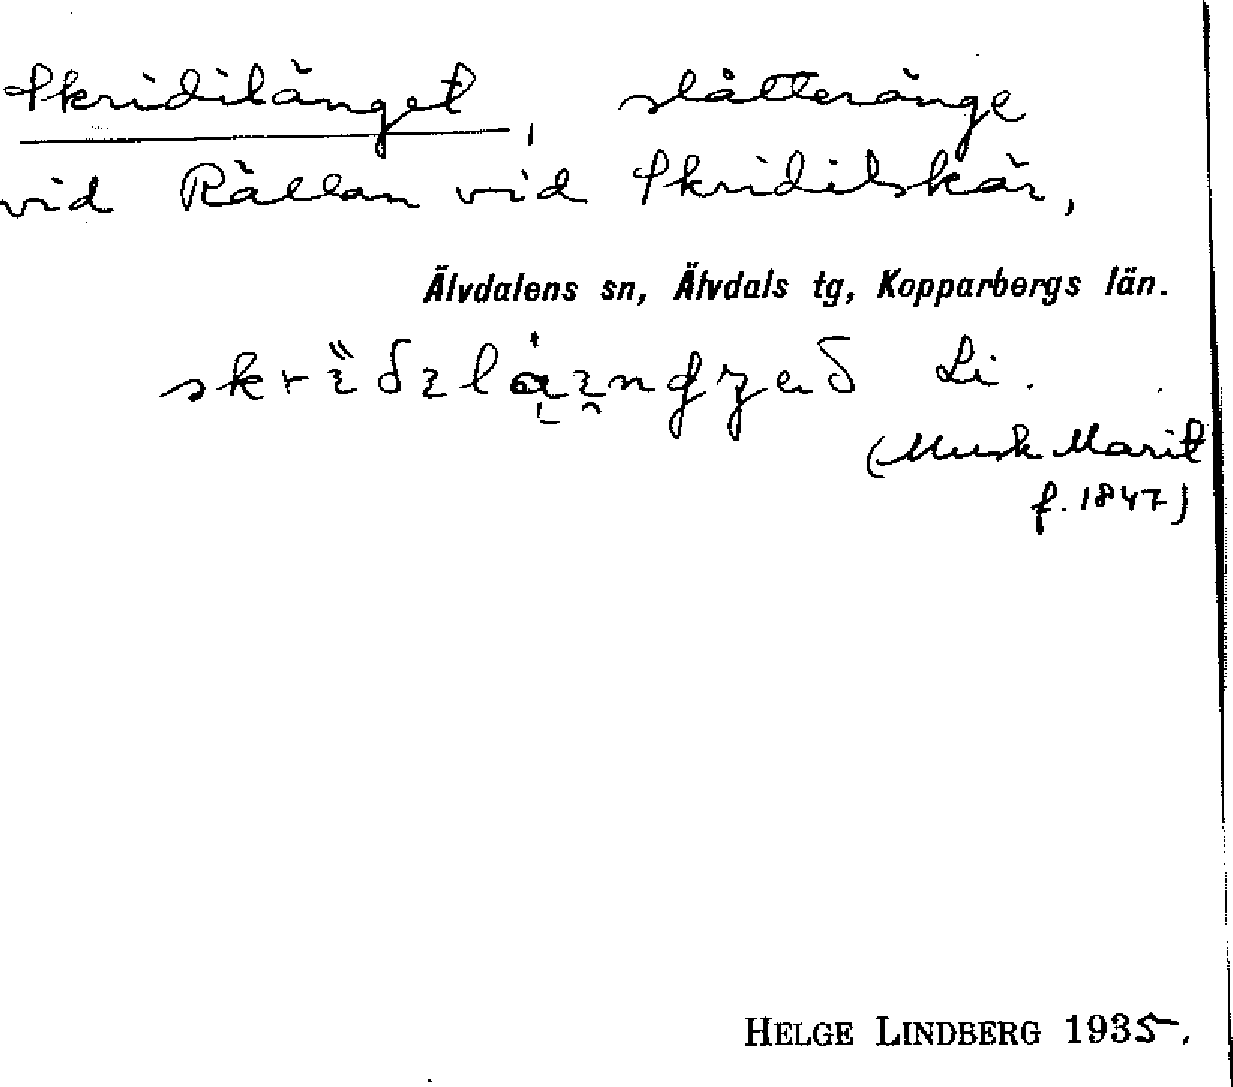 Skridilänget, slåtteränge
vid Rällan vid Skridilskär,
Älvdalens sn, Älvdals tg, Kopparbergs län.
Li.
(Musk Marit
f. 1847)
HELGE LINDBERG 1935.